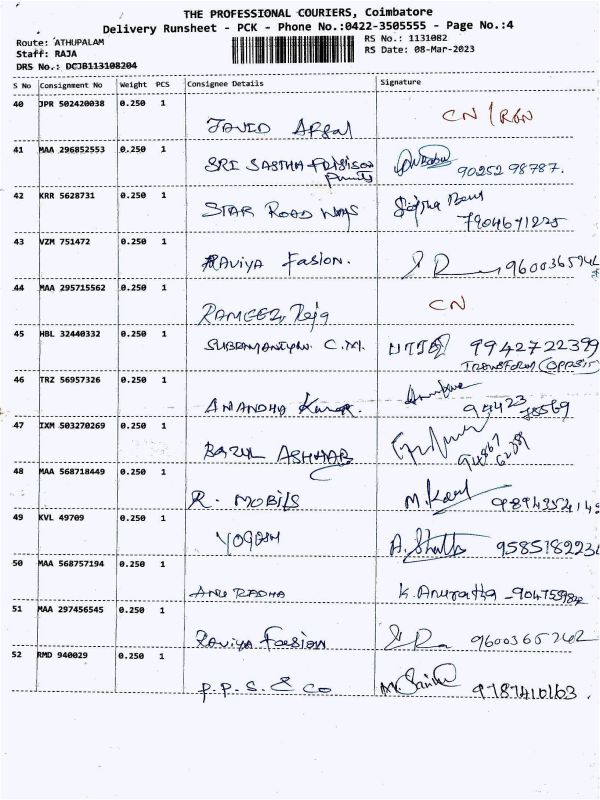 THE PROFESSIONAL COURIERS, Coimbatore
Delivery Runsheet - PCK - Phone No.:0422-3505555 - Page No.:4
Route: ATHUPALAM
RS No.: 1131082
Staff: RAJA
RS Date: 08-Mar-2023
DRS No.: DCJB113108204
S No Consignment No Weight PCS Consignee Details Signature
40 JPR 502420038 0.250 1
JAVID Afsal CN / RGN
41 MAA 296852553 0.250 1
SRI SASTHA 90252 98787.
Prints
42 KRR 5628731 0.250 1
STAR ROAD WAYS 7904671225
43 VZM 751472 0.250 1
RAViYA FaSion.
44 MAA 295715562 0.250 1
RAMEEZ Reja CN
45 HBL 32440332 0.250 1
SUBRAMANIYAN. C.M. 9942722399
46 TRZ 56957326 0.250 1
ANANDHA Kumar.
47 IXM 503270269 0.250 1
48 MAA 568718449 0.250 1
R. MOBILS
49 KVL 49709 0.250 1
YOGESH
50 MAA 568757194 0.250 1
ANU RADHA K. Anuratha
51 MAA 297456545 0.250 1
RAViYA Fasion 9600365742
52 RMD 940029 0.250 1
P.P.S. & Co 9787410163.